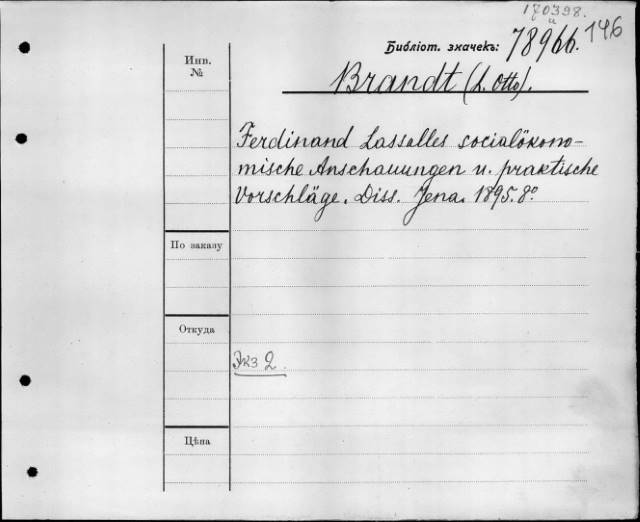 170398.
и
Библіот. значекъ: 78966. 146
Инв.
№
Brandt (L. Otto).
Ferdinand Lassalles socialökono-
mische Anschauungen u. praktische
Vorschläge. Diss. Jena. 1895. 8°
По заказу
Откуда
Экз 2.
Цѣна